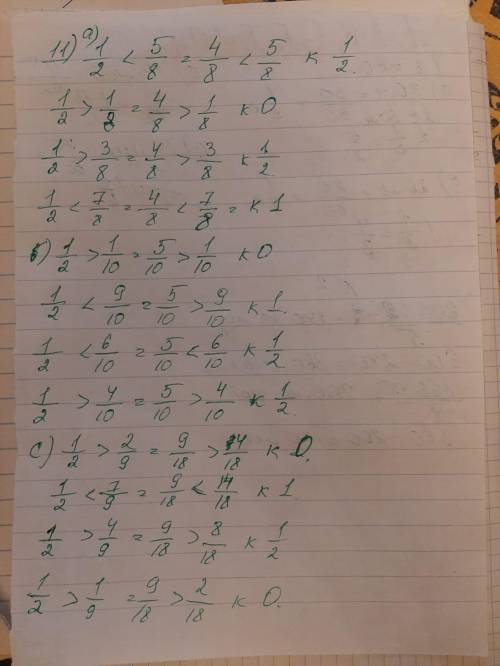 11) а) 1/2 < 5/8 = 4/8 < 5/8 к 1/2.
1/2 > 1/8 = 4/8 > 1/8 к 0
1/2 > 3/8 = 4/8 > 3/8 к 1/2
1/2 < 7/8 = 4/8 < 7/8 = к 1
б) 1/2 > 1/10 = 5/10 > 1/10 к 0
1/2 < 9/10 = 5/10 > 9/10 к 1.
1/2 < 6/10 = 5/10 < 6/10 к 1/2
1/2 > 4/10 = 5/10 > 4/10 к 1/2.
с) 1/2 > 2/9 = 9/18 > 4/18 к 0.
1/2 < 7/9 = 9/18 < 14/18 к 1
1/2 > 4/9 = 9/18 > 8/18 к 1/2
1/2 > 1/9 = 9/18 > 2/18 к 0.